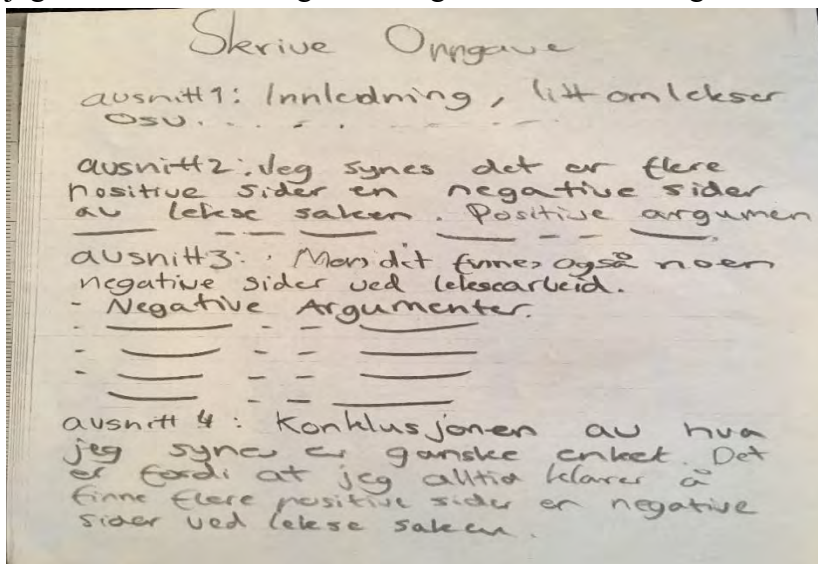 Skrive Oppgave
avsnitt1: Innledning, litt om lekser
osv. - - . - - -
avsnitt2: Jeg synes det er flere
positive sider en negative sider
av lekse saken. Positive argumen
avsnitt3: Men det finnes også noen
negative sider ved leksearbeid.
- Negative Argumenter.
avsnitt 4: Konklusjonen av hva
jeg synes er ganske enkel. Det
er fordi at jeg alltid klarer å
finne flere positive sider en negative
sider ved lekse saken.